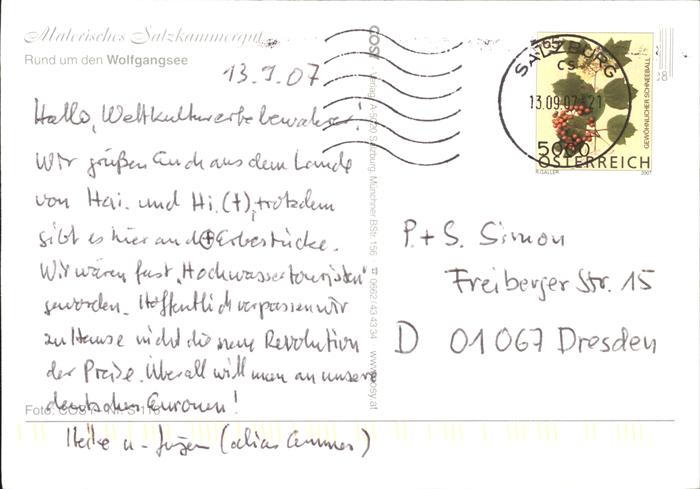 Malerisches Salzkammergut
Rund um den Wolfgangsee
13.9.07
Hallo, Weltkulturerbebewahrer!
Wir grüßen Euch aus dem Lande
von Hai. und Hi. (+), trotzdem
gibt es hier and Erbestücke.
Wir wären fast "Hochwassertouristen"
geworden. Hoffentlich verpassen wir
zu Hause nicht die neue Revolution
der Preise. Überall will man an unsere
deutschen Euronen!
Foto: COSY
Heike u. Jürgen (alias
COSY Verlag, A-5020 Salzburg, Münchner BStr. 156 ☎ 0662/43 43 34 www.cosy.at
SALZBURG
13.09.07 - 21
GEWÖHNLICHER SCHNEEBALL
ÖSTERREICH
2007
P. + S. Simon
Freiberger Str. 15
D 01067 Dresden